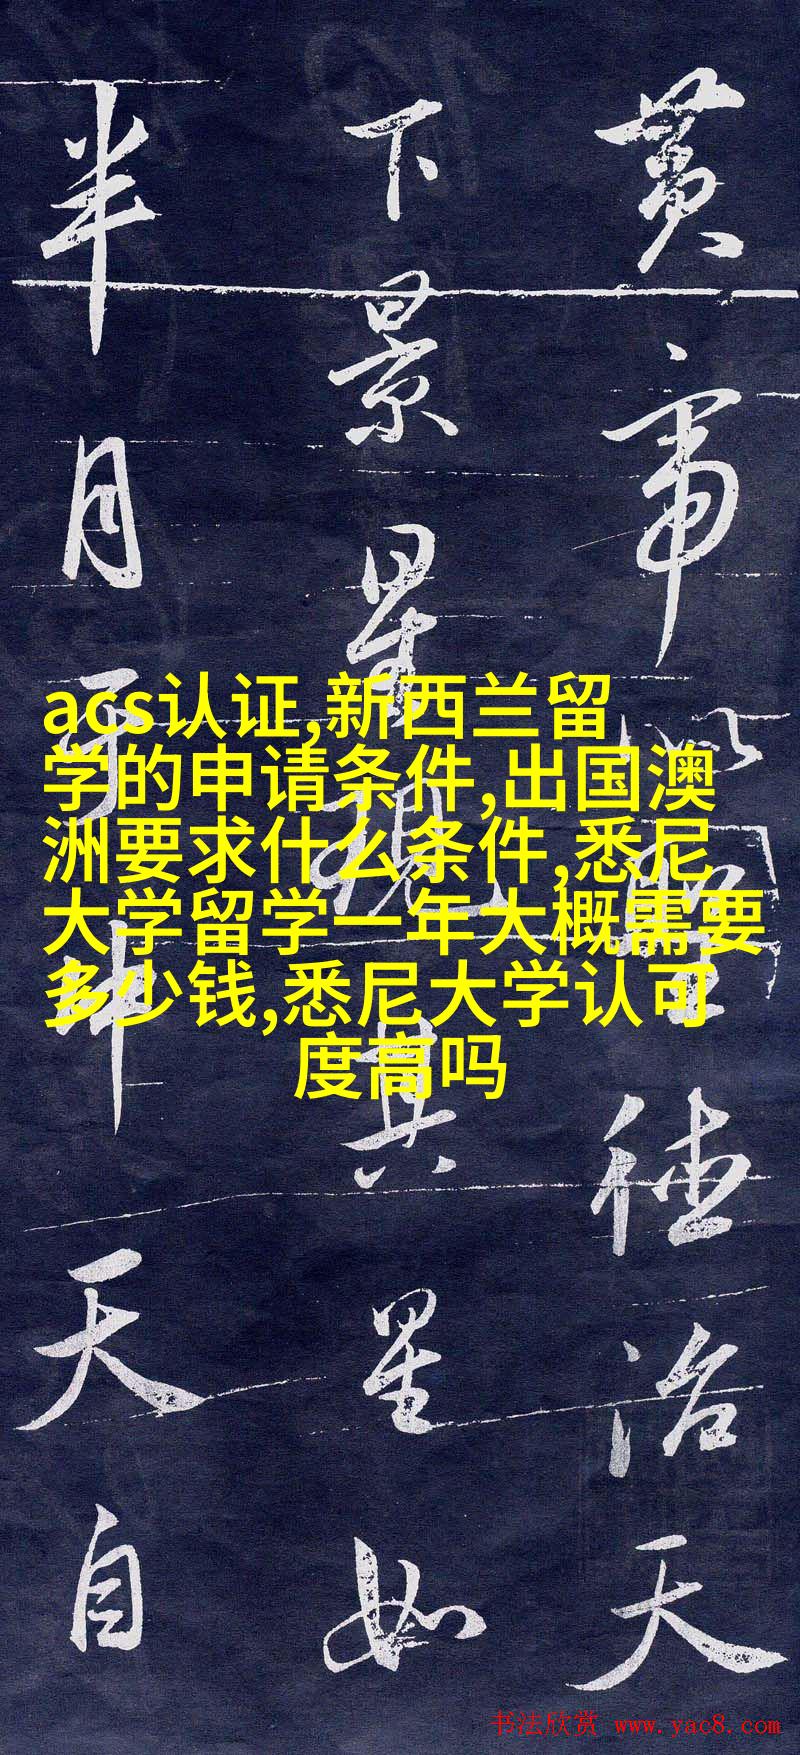 黄帝以聖德治天
下景星現其星如
半月于中天自
acs认证,新西兰留
学的申请条件,出国澳
洲要求什么条件,悉尼
大学留学一年大概需要
多少钱,悉尼大学认可
度高吗
书法欣赏 www.yac8.com